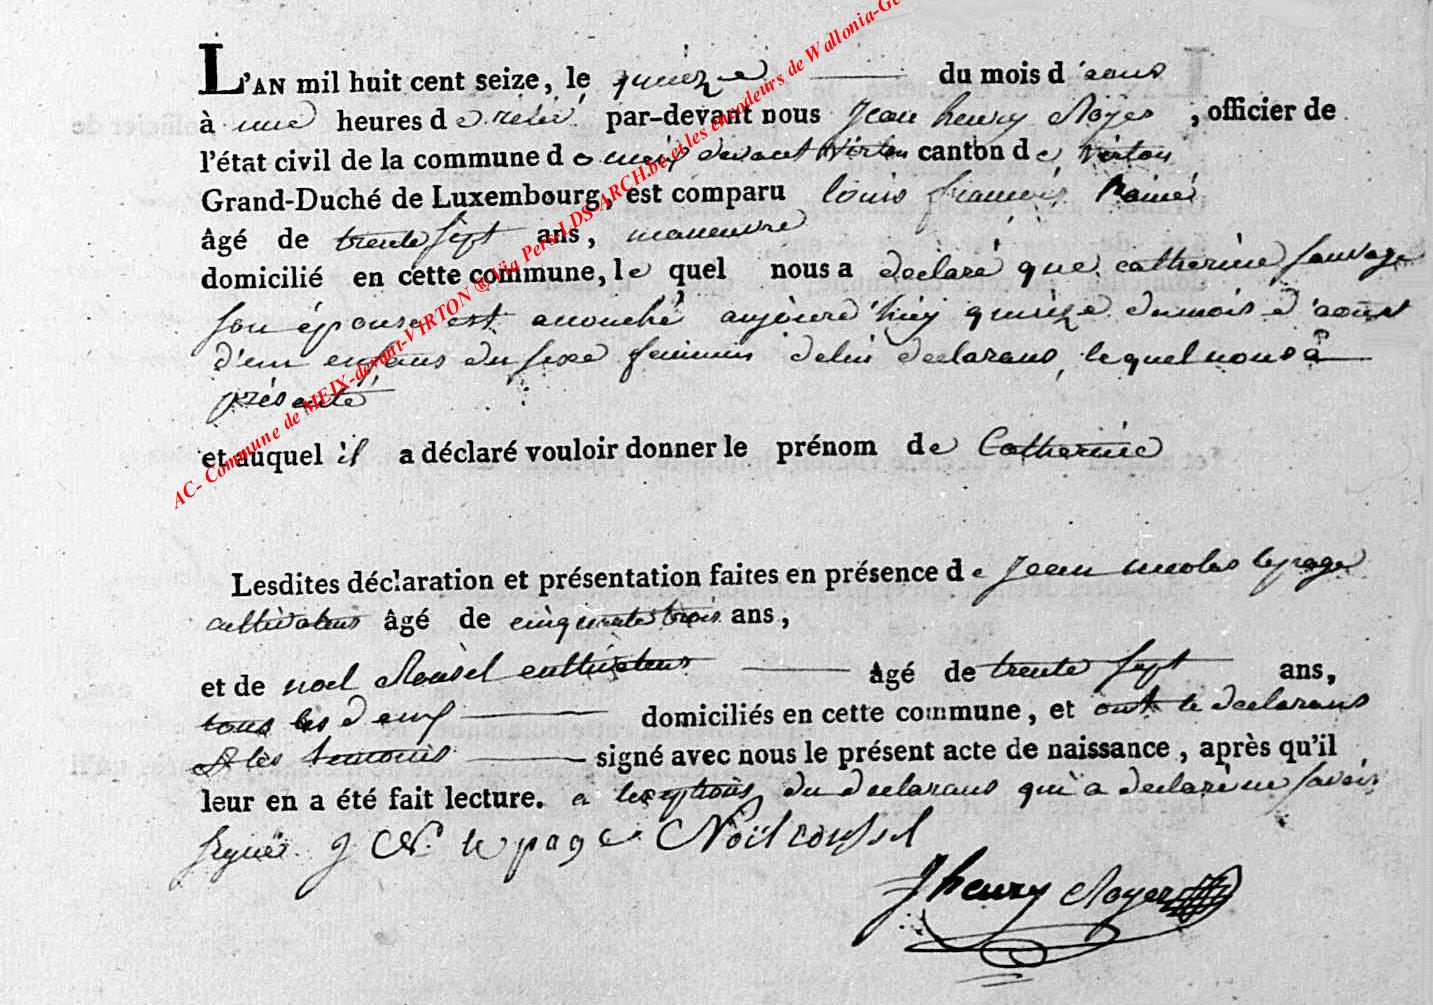 L'AN mil huit cent seize, le quinze du mois d'aous
à une heures de reléé par-devant nous Jean henry Royer, officier de
l'état civil de la commune de meix devant Virton canton de Virton
Grand-Duché de Luxembourg, est comparu louis francois
âgé de trente sept ans, maneuvre
domicilié en cette commune, le quel nous a declaré que catherine sauvage
son épouse est accouché aujourd'huy quinze du mois d'aoust
d'un enfans du sexe feminin de lui declarans, lequel nous à
présenté
et auquel il a déclaré vouloir donner le prénom de Catherine
Lesdites déclaration et présentation faites en présence de Jean nicolas lepage
cultivateur âgé de cinquante trois ans,
et de noel Roussel cultivateur âgé de trente sept ans,
tous les deux domiciliés en cette commune, et ont le declarans
& les temoins signé avec nous le présent acte de naissance, après qu'il
leur en a été fait lecture. a lexeptions du declarans qui a declaré ne savoir
signer J N lepage Noël roussel
J henry Royer
AC- Commune de MEIX-devant-VIRTON ® Via Pers.LDS-ARCH.be et les encodeurs de Wallonia-Ge